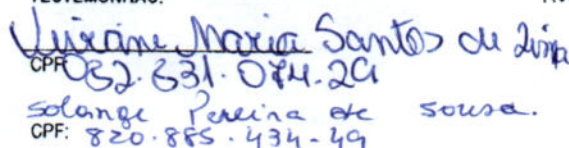 TESTEMUNHAS:
Maria Santos de Lima
CPF 032.631.074.29
Solange Pereira de Sousa.
CPF: 820.885.434-49